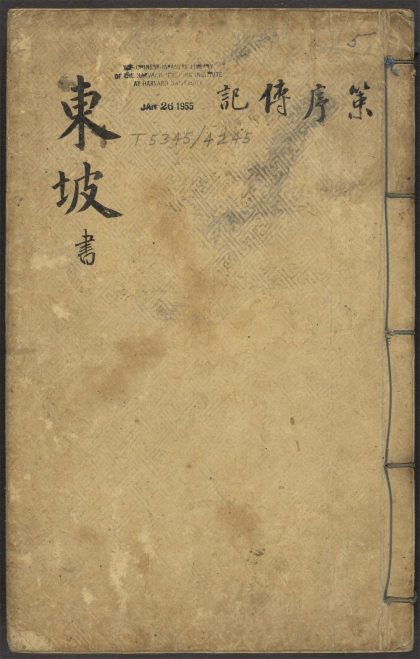 東坡
書
策 序 傳 記
5
THE CHINESE-JAPANESE LIBRARY
OF THE HARVARD-YENCHING INSTITUTE
AT HARVARD UNIVERSITY
JAN 26 1955
T5345/4245